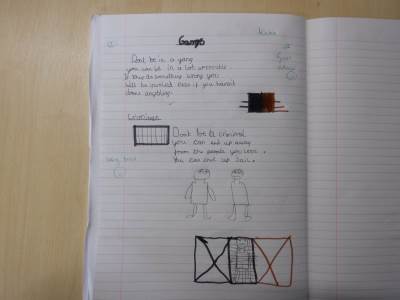 Gangs
Dont be in a gang
you could be in a lot
If they do something wrong you
will be involved even if you havent
done anything.
Criminal
Dont be a criminal
you can end up away
from the people you love.
You can end up Jail.